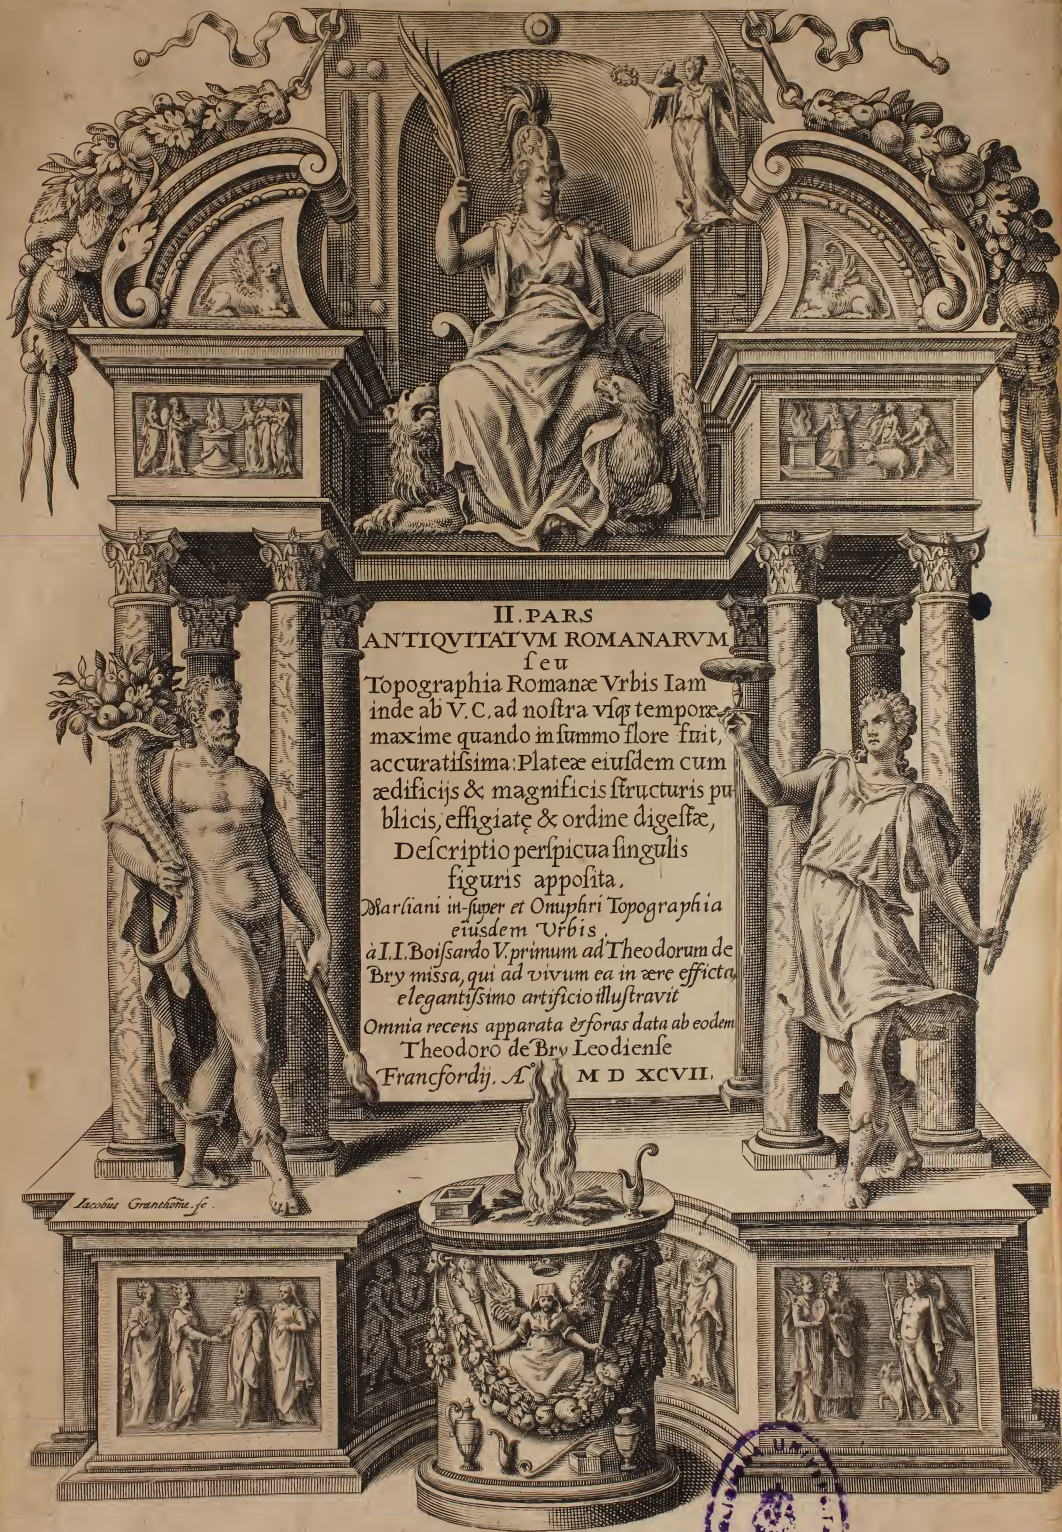 II. PARS
ANTIQVITATVM ROMANARVM
ſeu
Topographia Romanæ Vrbis Iam
inde ab V. C. ad noſtra vſqꝫ tempora,
maxime quando in ſummo flore fuit,
accuratiſsima: Plateæ eiuſdem cum
ædificijs & magnificis ſtructuris pu
blicis, effigiatę & ordine digeſtæ,
Deſcriptio perſpicua ſingulis
figuris appoſita.
Marliani in-ſuper et Onuphri Topographia
eiusdem Vrbis.
à I. I. Boiſsardo V. primum ad Theodorum de
Bry miſsa, qui ad vivum ea in ære efficta,
elegantiſsimo artificio illuſtravit
Omnia recens apparata & foras data ab eodem
Theodoro de Bry Leodienſe
Francfordij. Aº M D XCVII.
Iacobus Granthom̄e. fe.